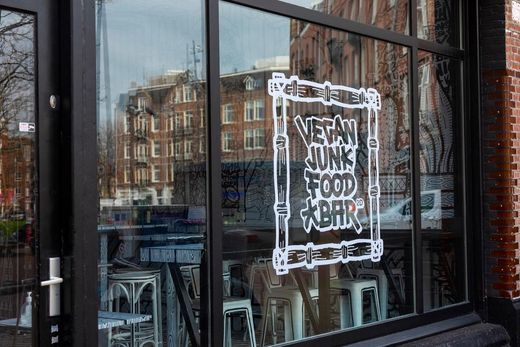 VEGAN
JUNK
FOOD
XBAR